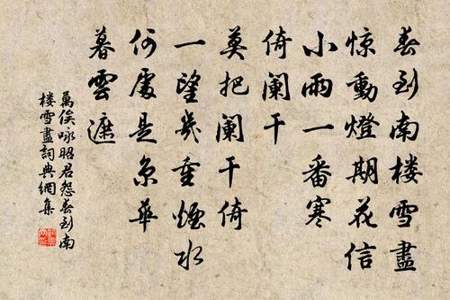 春到南楼雪盡
惊動燈期花信
小雨一番寒
倚阑干
莫把阑干倚
一望幾重煙水
何處是京華
暮雲遮
萬俟咏昭君怨春到南
楼雪盡詞典網集